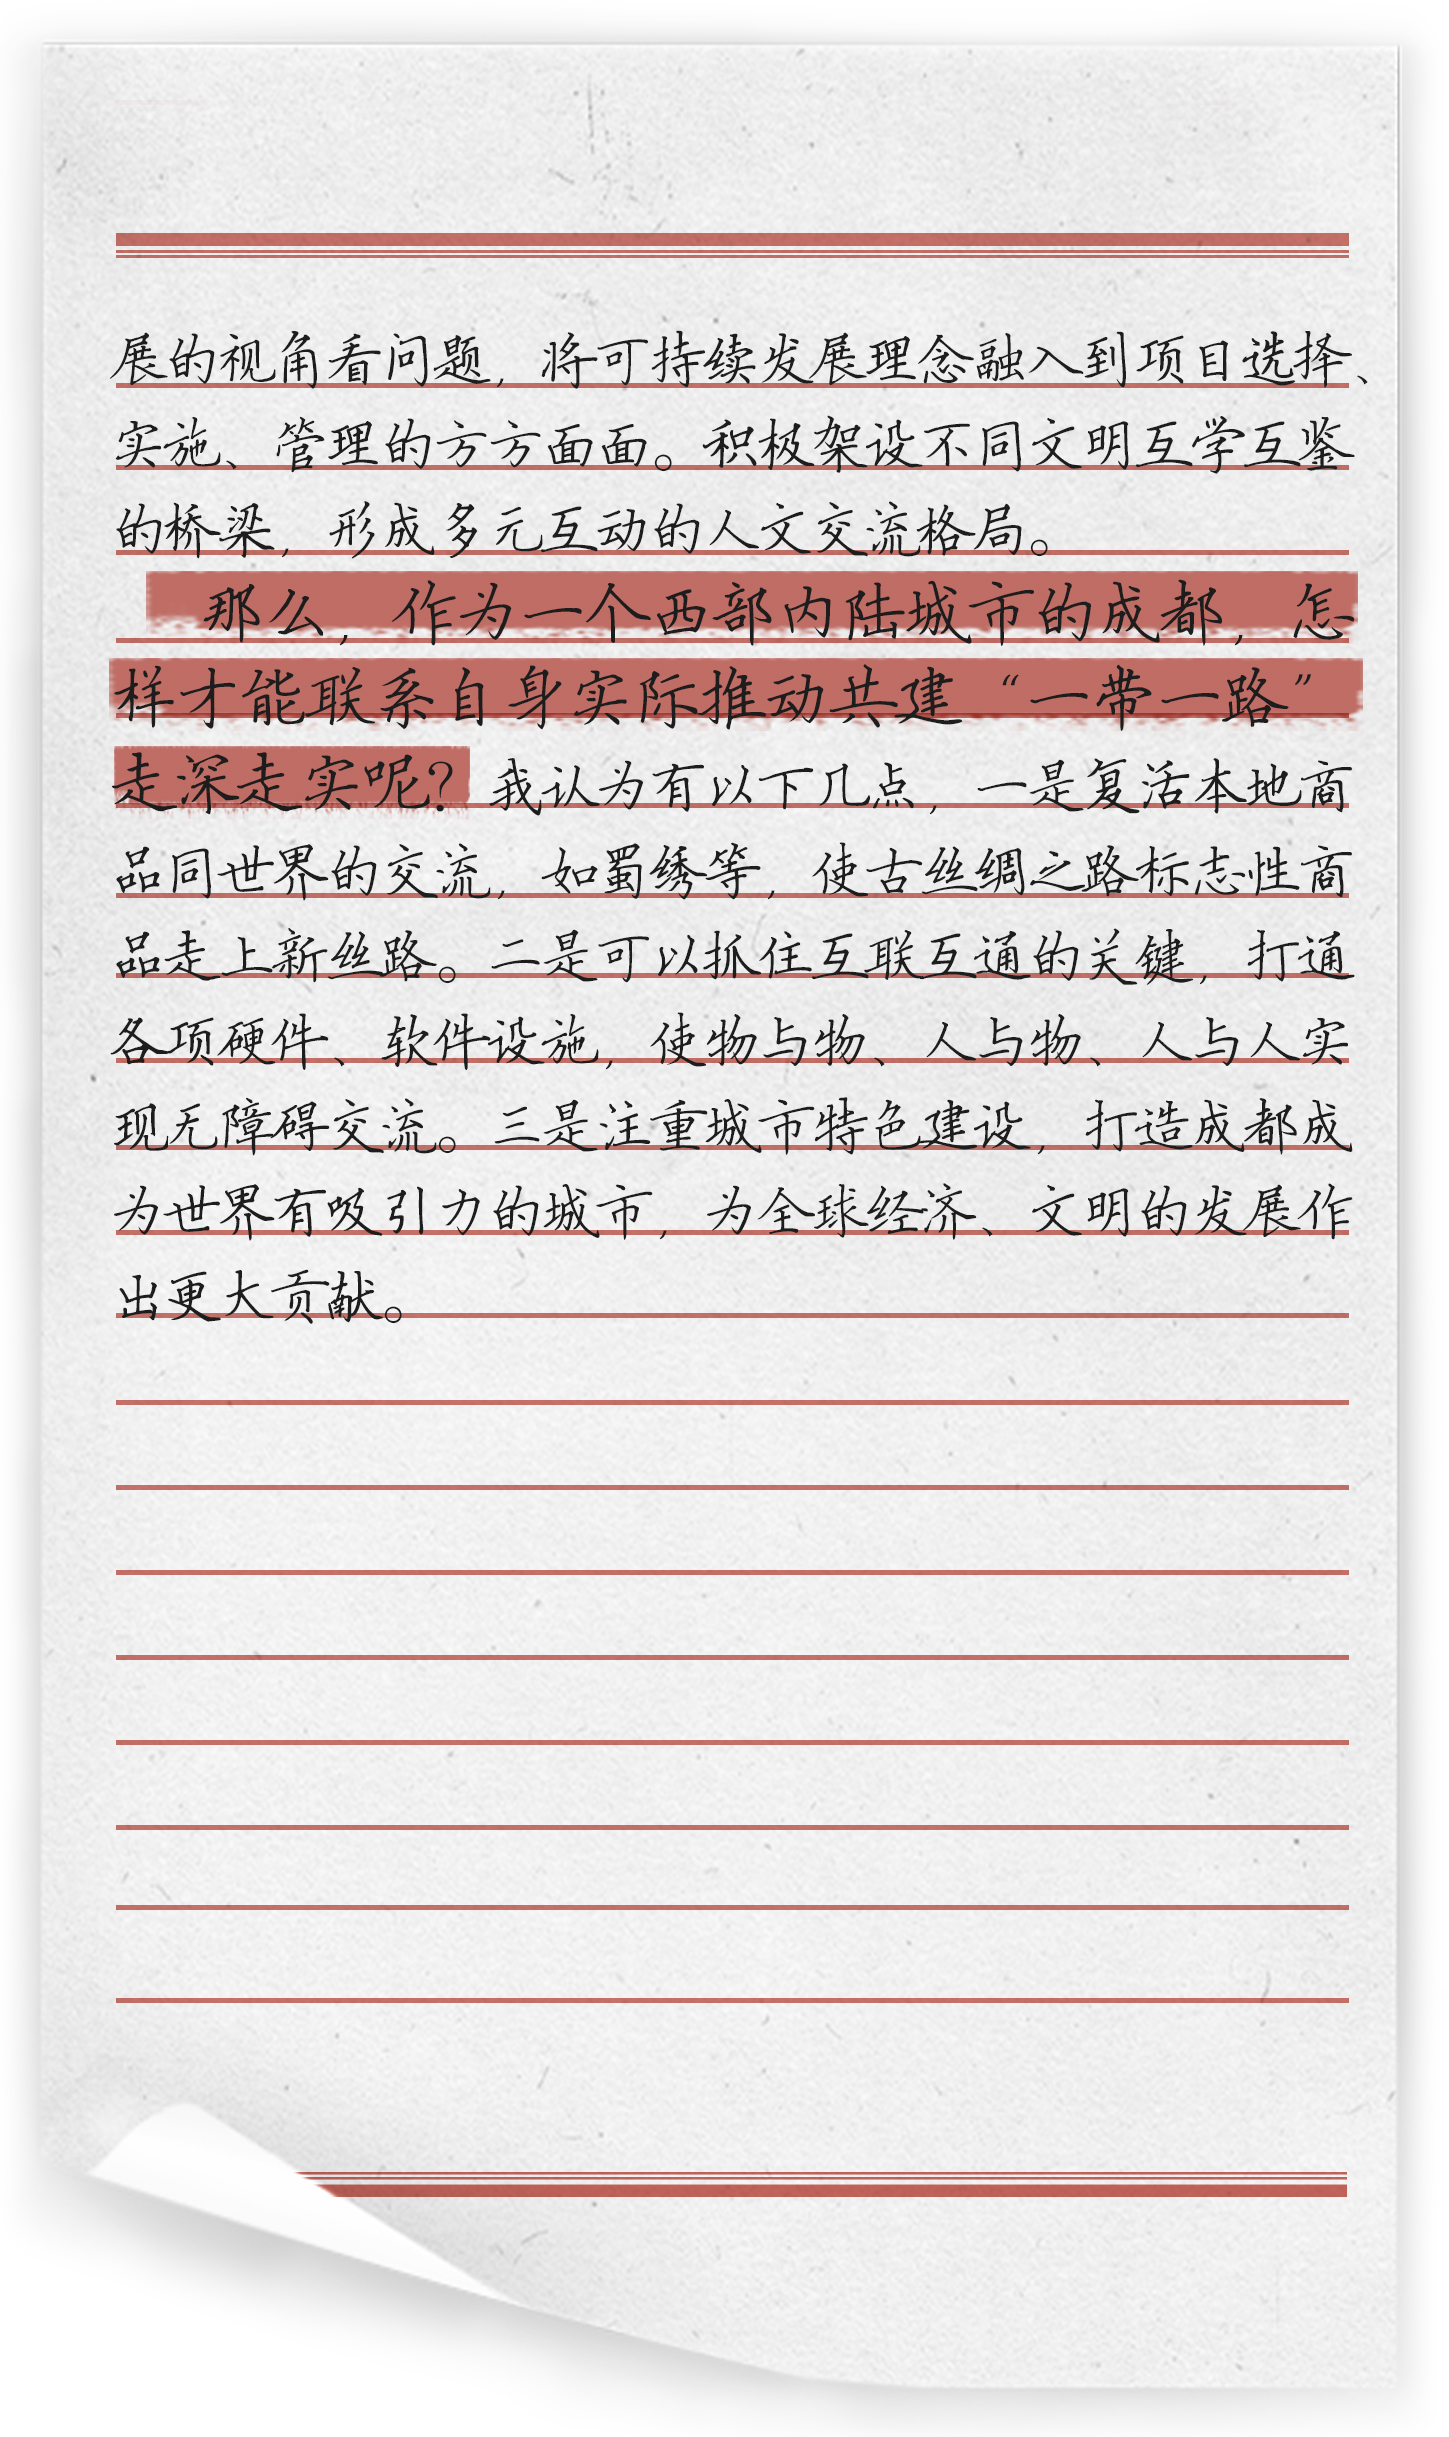 展的视角看问题，将可持续发展理念融入到项目选择、
实施、管理的方方面面。积极架设不同文明互学互鉴
的桥梁，形成多元互动的人文交流格局。
那么，作为一个西部内陆城市的成都，怎
样才能联系自身实际推动共建“一带一路”
走深走实呢？我认为有以下几点，一是复活本地商
品同世界的交流，如蜀绣等，使古丝绸之路标志性商
品走上新丝路。二是可以抓住互联互通的关键，打通
各项硬件、软件设施，使物与物、人与物、人与人实
现无障碍交流。三是注重城市特色建设，打造成都成
为世界有吸引力的城市，为全球经济、文明的发展作
出更大贡献。